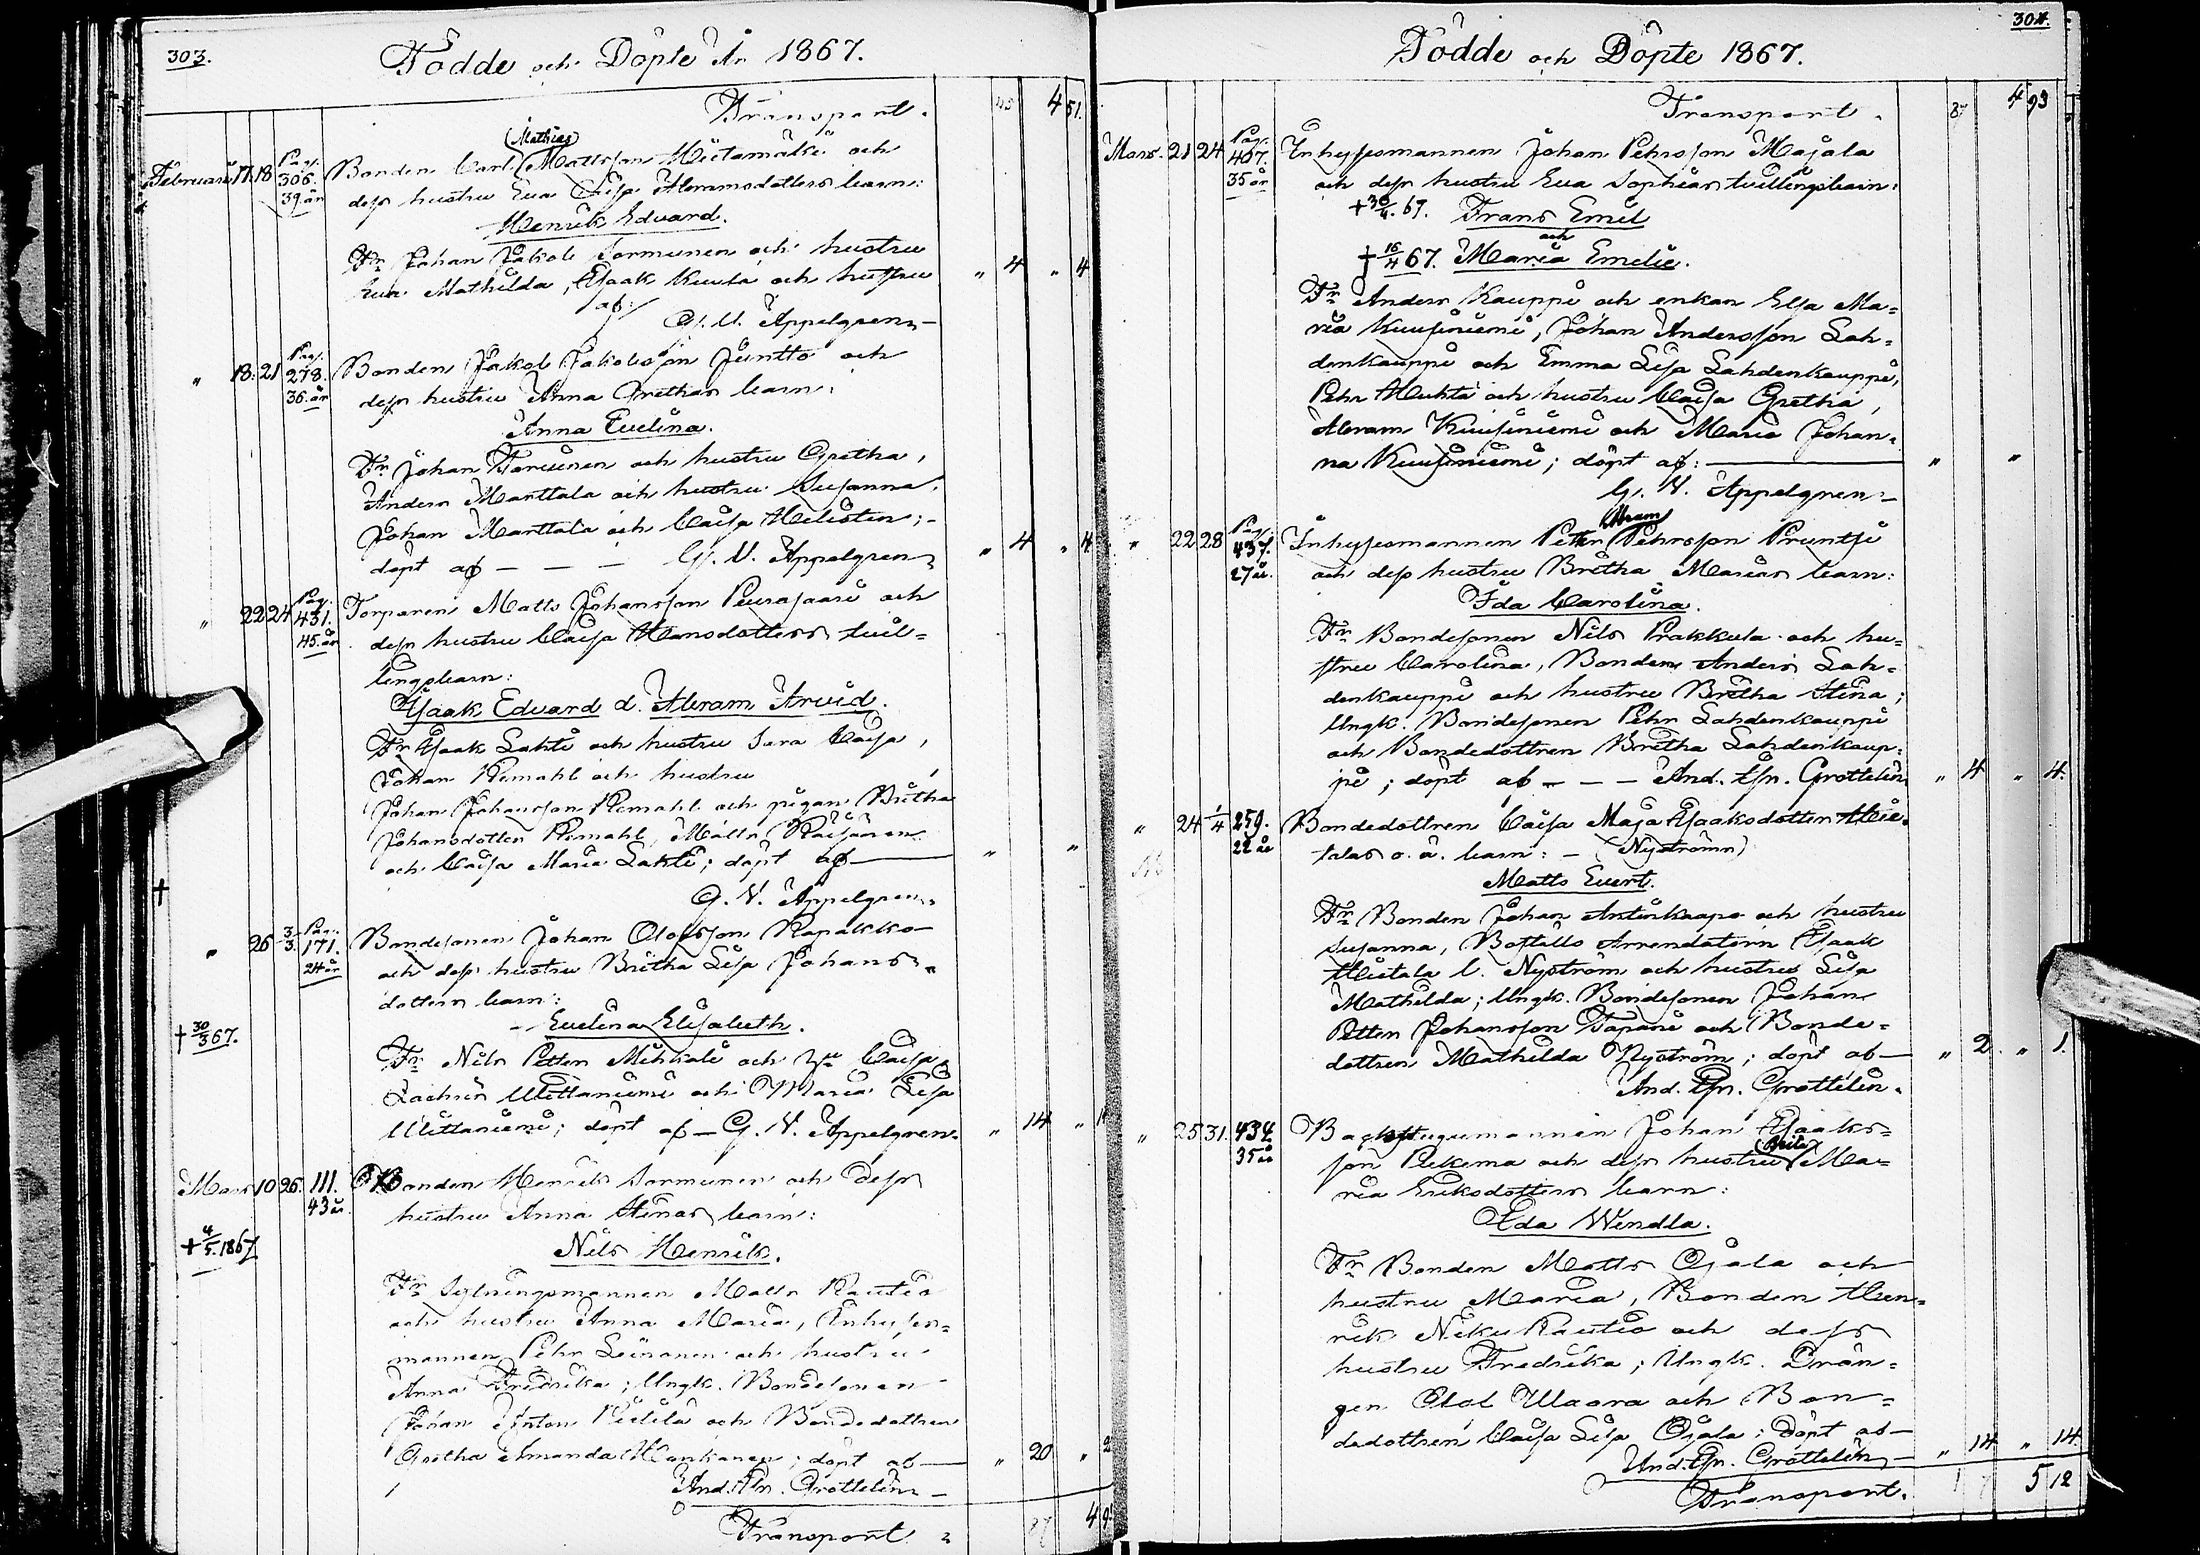 303.
Födde och Döpte År 1867.
Transport. 45 4 51.
(Mathias)
Februari 17. 18 Pag. 306. 39 år Bonden Carl Mattsson Hietamäki och
dess hustru Eva Lisa Abramsdotters barn:
Henrik Edvard.
Fr. Johan Jakob Sormunen och hustru
Eva Mathilda, Isaak Kuula och hustru " 4 " 4
af:
G. V. Appelgren.
" 18. 21 Pag. 278. 36. år Bonden Jakob Jakobsson Juntto och
dess hustru Anna Grethas barn:
Anna Evelina.
Fr. Johan Torvinen och hustru Gretha,
Anders Marttala och hustru Susanna,
Johan Marttala och Caisa Helisten;
döpt af — — — G. V. Appelgren. " 4 " 4
" 22 24 Pag. 431. 45. år Torparen Matts Johansson Peurasaari och
dess hustru Caisa Hansdotters tvil-
lingsbarn:
Isaak Edvard d. Abram Arvid.
Fr. Isaak Lahti och hustru Sara Caisa,
Johan Remahl och hustru
Johan Johansson Remahl och pigan Britha
Johansdotter Remahl, Matts Räisänen
och Caisa Maria Lahti; döpt af — " "
G. V. Appelgren.
†
" 26 3/3 Pag. 171. 24 år Bondesonen Johan Olofsson Rapakko
och dess hustru Britha Lisa Johans-
dotters barn:
Evelina Elisabeth.
† 30/3 67.
Fr. Nils Petter Mihkali och hu Caisa,
Zachris Ulittaniemi och Maria Lisa
Ulittaniemi; döpt af — G. V. Appelgren. " 14 "
Mars 10 26. 111. 43 år Bonden Henrik Sormunen och dess
hustru Anna Stinas barn:
† 4/5. 1867
Nils Henrik.
Fr. Sytningsmannen Matts Rautio
och hustru Anna Maria, Inhyses-
mannen Pehr Leinonen och hustru
Anna Fredrika; Ungk. Bondesonen
Johan Anton Pietilä och Bondedottren
Gretha Amanda Hankanen; döpt af — " 20 " 2
And. Fr. Grottelin —
Transport. 87 4 9
304.
Födde och Döpte 1867.
Transport. 87 4 93
Mars. 21 24 Pag. 407. 35 år Inhysesmannen Johan Pehrsson Majala
och dess hustru Eva Sophias tvillingsbarn:
† 30/4. 67. Frans Emil
och
† 16/4 67. Maria Emelie.
Fr. Anders Kauppi och enkan Elsa Ma-
ria Kuusiniemi, Johan Andersson Lah-
denkauppi och Emma Lisa Lahdenkauppi,
Pehr Huhta och hustru Caisa Gretha,
Abram Kuusiniemi och Maria Johan-
na Kuusiniemi; döpt af: — " "
G. V. Appelgren —
(Abram)
" 22 28 Pag. 437. 27 år. Inhysesmannen Petter Pehrsson Pruntsi
och dess hustru Britha Marias barn:
Ida Carolina.
Fr. Bondesonen Nils Prakkula och hu-
stru Carolina, Bonden Anders Lah-
denkauppi och hustru Britha Stina;
Ungk. Bondesonen Pehr Lahdenkauppi
och Bondedottren Britha Lahdenkaup-
pi; döpt af — — — And. Fr. Grottelin. " 4 " 4.
" 24 1/4 259. 22 år Bondedottren Caisa Maja Isaaksdotter Hie-
talas o. ä. barn: — (Nyströms)
Matts Evert.
Fr. Bonden Johan Antinkaapo och hustru
Susanna, Boställs Arrendatorn Isaak
Hietala l. Nyström och hustru Lisa
Mathilda; Ungk. Bondesonen Johan
Petter Johansson Tapani och Bonde-
dottren Mathilda Nyström; döpt af — " 2. " 1.
And. Fr. Grottelin.
" 25 31. 434. 35 år Backstugumannen Johan Isaaks-
(Brita)
son Pekema och dess hustru Ma-
ria Eriksdotters barn:
Ida Wendla.
Fr. Bonden Matts Ojala och
hustru Maria, Bonden Hen-
rik Niku Rautio och dess
hustru Fredrika; Ungk. Drän-
gen Olof Waara och Bon-
dedottren Caisa Lisa Ojala; döpt af —
And. Fr. Grottelin — " 14 " 14.
Transport. 5 12